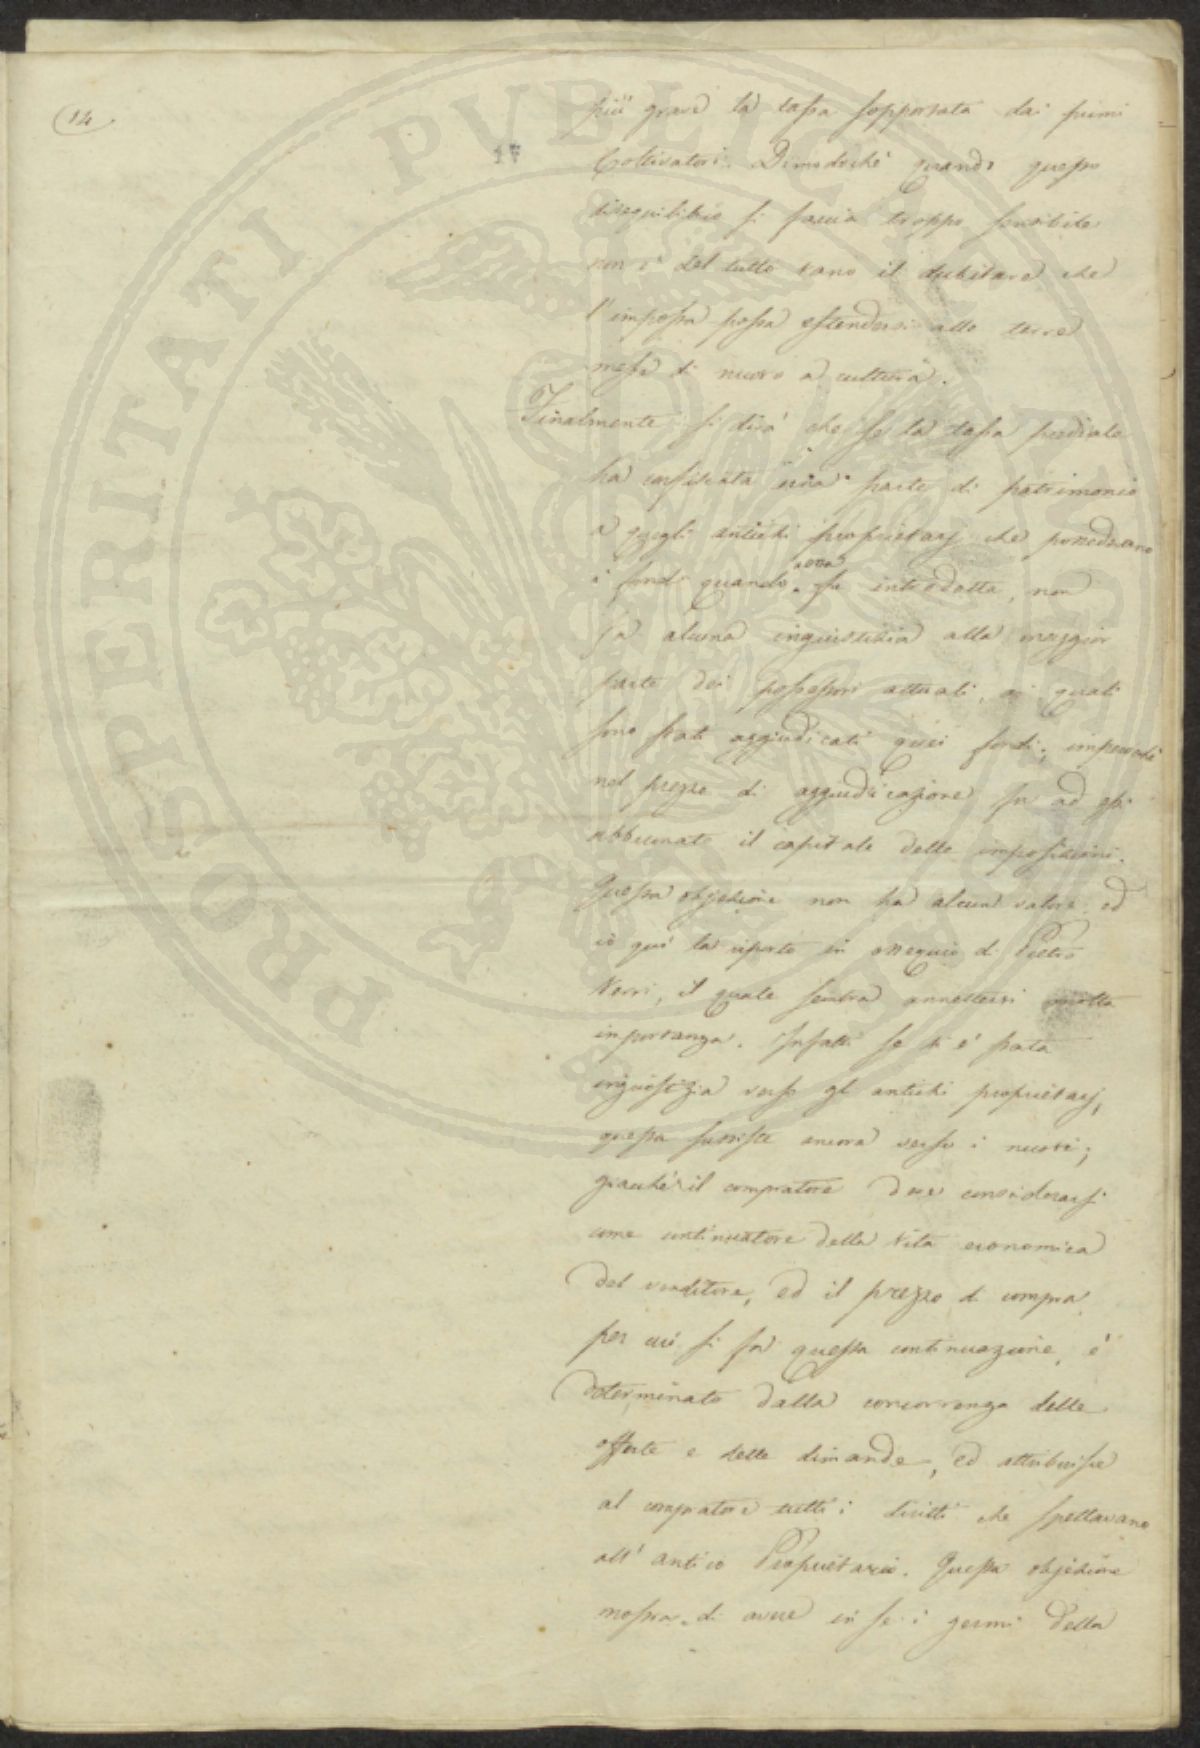 14
17
più grave la tassa sopportata dai primi
Coltivatori. Dimodochè quando questo
disequilibrio si faccia troppo sensibile
non è del tutto vano il dubitare che
l'imposta possa estendersi alle terre
messe di nuovo a cultura.
Finalmente si dirà che se la tassa prediale
ha confiscata una parte di patrimonio
a quegli antichi proprietarj che possedevano
i fondi quando essa fu introdotta, non
fa alcuna ingiustizia alla maggior
parte dei possessori attuali, ai quali
sono stati aggiudicati quei fondi; imperocchè
nel prezzo di aggiudicazione fu ad essi
abbuonato il capitale delle imposizioni.
Questa objezione non ha alcun valore ed
io quì la riporto in ossequio di Pietro
Verri, il quale sembra annettervi molta
importanza. Infatti se vi è stata
ingiustizia verso gl' antichi proprietarj,
questa sussiste ancora verso i nuovi;
giacchè il compratore deve considerarsi
come continuatore della vita economica
del venditore, ed il prezzo di compra
per cui si fa questa continuazione, è
determinato dalla concorrenza delle
offerte e delle dimande, ed attribuisce
al compratore tutti i diritti che spettavano
all' antico Proprietario. Questa objezione
mostra di avere in se i germi della
PROSPERITATI PVBLICAE